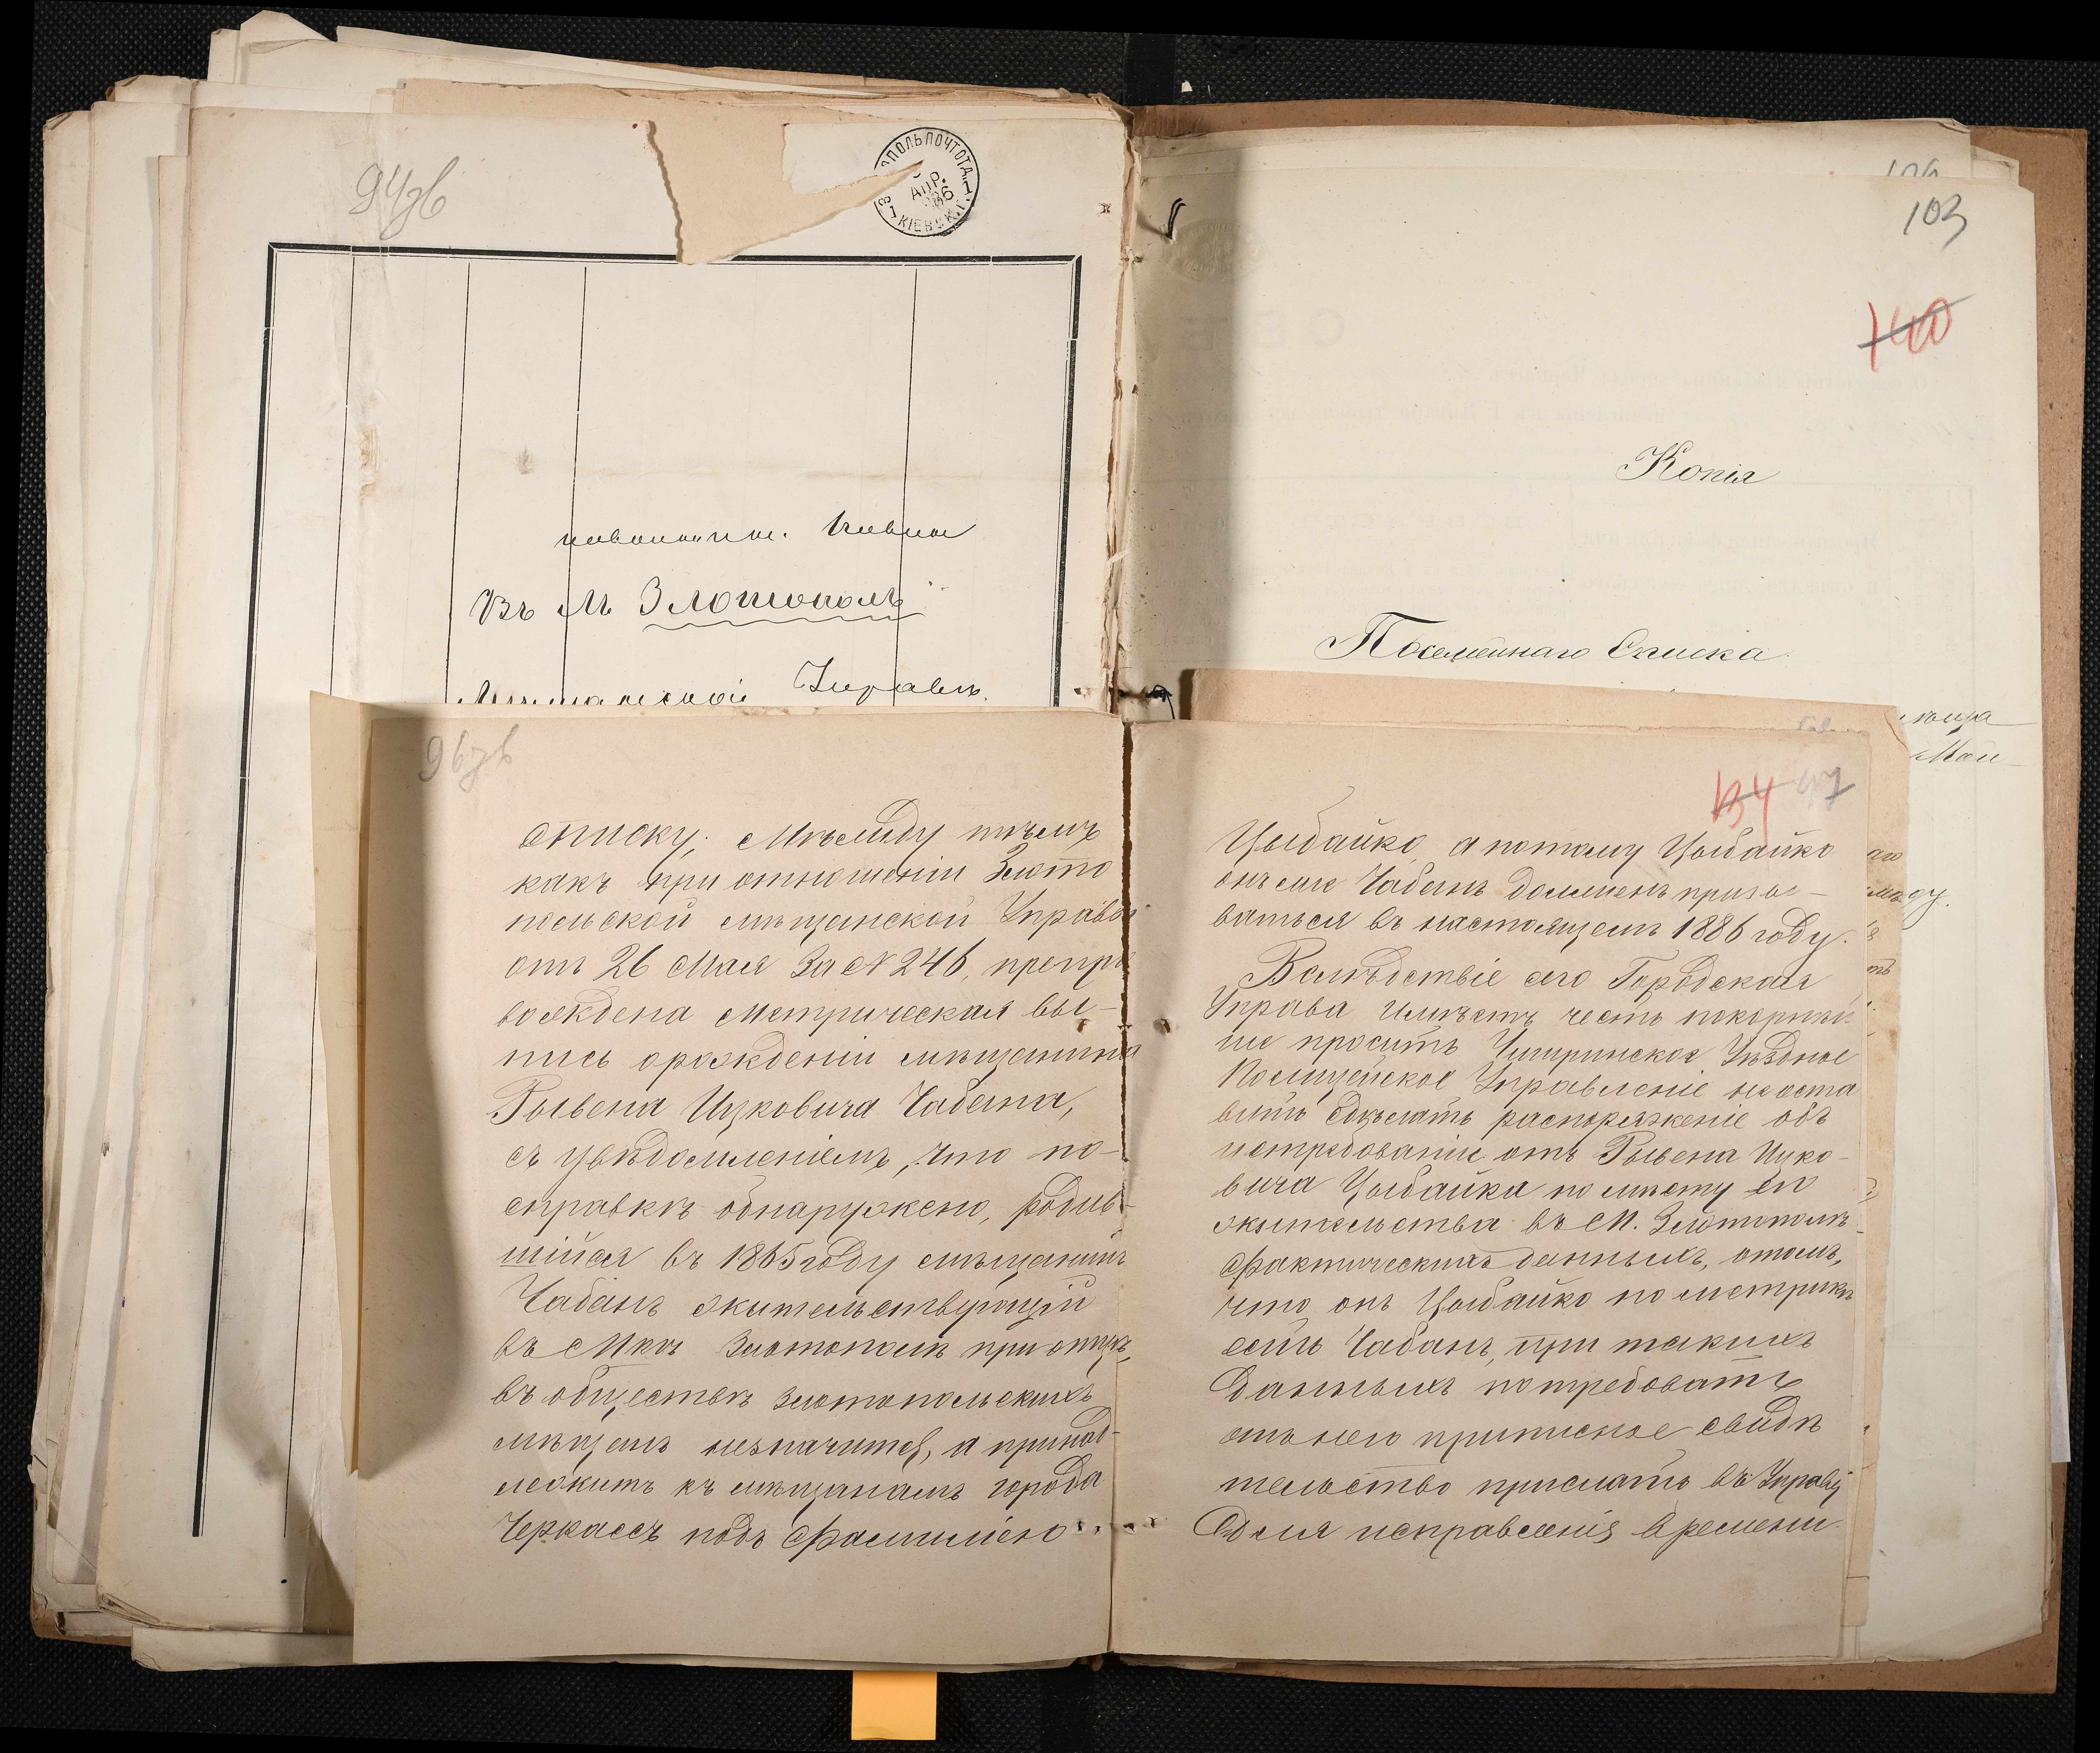 94зв
ОПОЛЬ ПОЧТ ОТД.
АПР.
КІЕВСК. Г.
Въ М Злотополь
Мещанской Управѣ.
103
100
Копія
Посемейнаго Списка
96зв
списку; Между тѣмъ
какъ при отношеніи Злото
польской мѣщанской Управы
отъ 26 Мая За № 246, препро
вождена метрическая вы-
пись орожденіи мѣщанина
Рывена Ицковича Чабана,
съ увѣдомленіемъ, что по-
справкѣ обнаружено, родив-
шійся въ 1865 году мѣщанинъ
Чабанъ жительствующій
въ Мкѣ Злотополѣ при отцѣ,
въ обществѣ Злотопольскихъ
мѣщанъ незначится, а принад-
лежитъ къ мѣщанамъ города
Черкассъ подъ фамиліею
134 97
Цыбайко, а потому Цыбайко
онъ же Чабанъ долженъ призы-
ваться въ настоящемъ 1886 году.
Вслѣдствіе сего Городская
Управа имѣетъ честь покорнѣй
ше просить Чигиринское Уѣздное
Полицейское Управленіе не оста
вить сдѣлать распоряженіе объ
истребованіи отъ Рывена Ицко-
вича Цыбайка по мѣсту его
жительства въ М. Злотополѣ
фактическихъ данныхъ, отомъ,
что онъ Цыбайко по метрикѣ
есть Чабанъ, при такихъ
данныхъ потребовать
отъ него приписное свидѣ
тельство прислать въ Управу
для исправленія времени